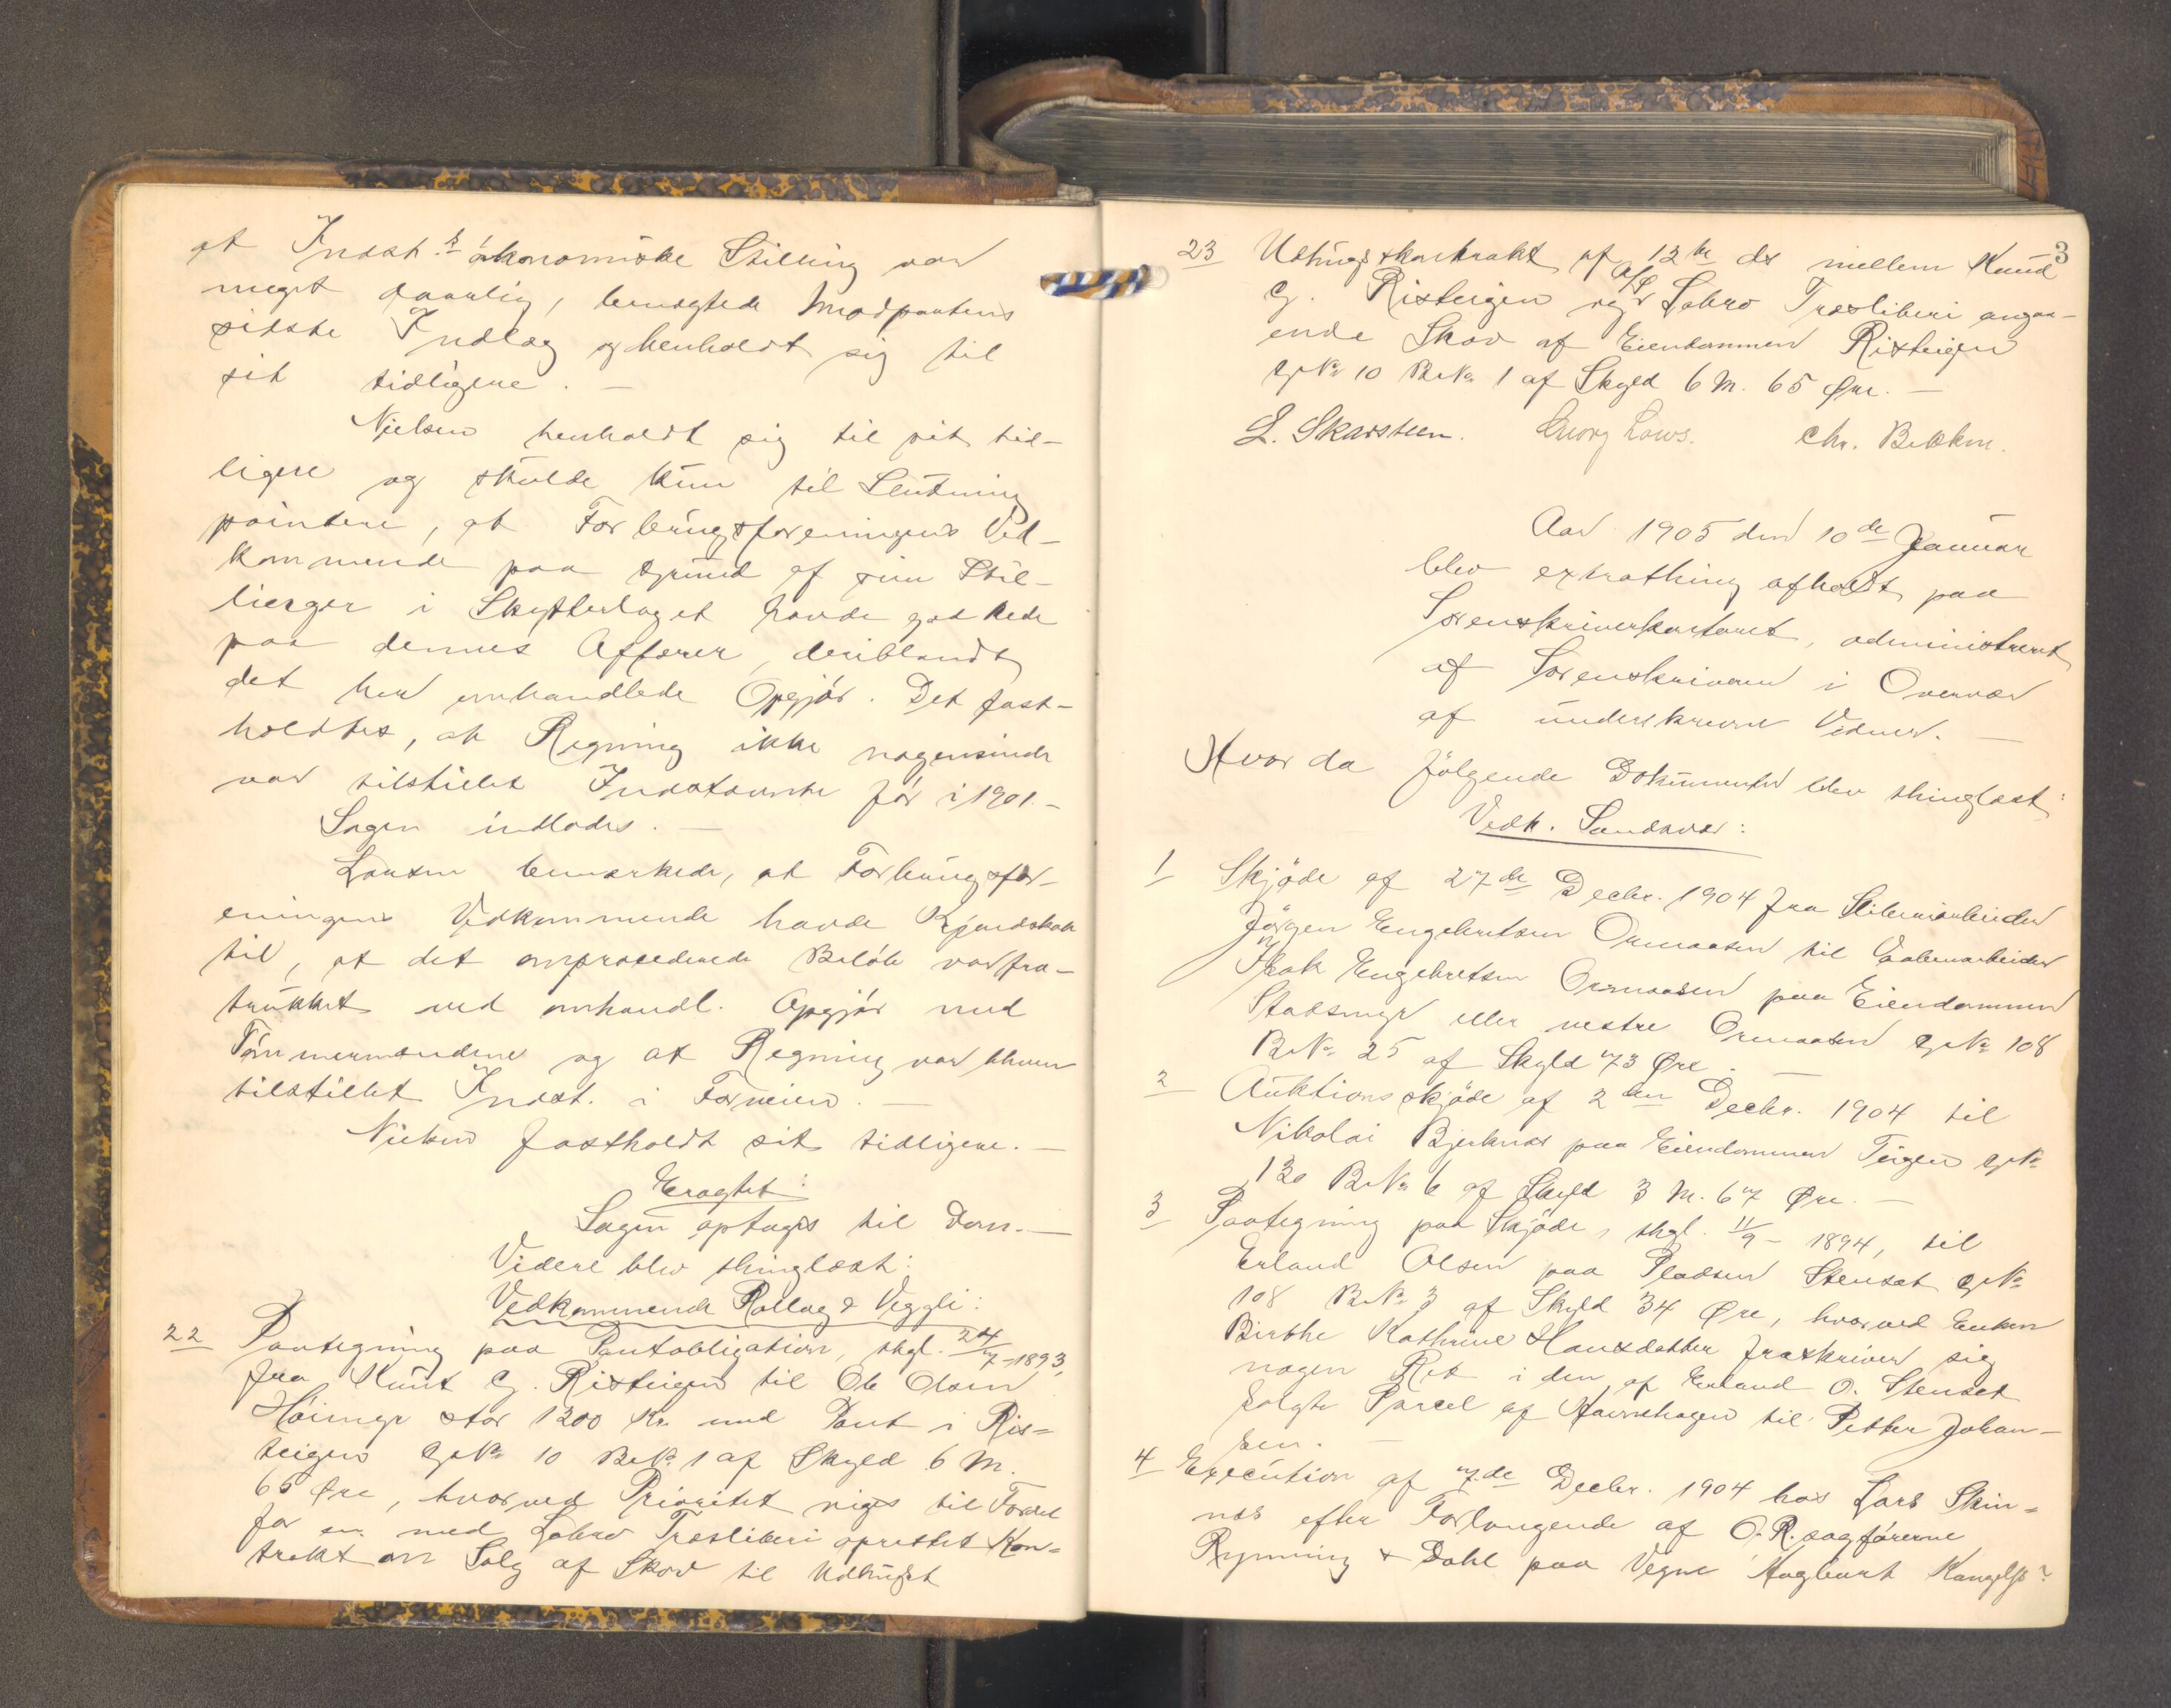 at Indst.s økonomiske Stilling var
meget daarlig, benegtede Modpartens
sidste Indlæg og henholdt sig til
sit tidligere. —
Nielsen henholdt sig til sit tid-
ligere og skulde kun til Slutning
pointere, at Forbrugsforeningens Ved-
kommende paa Grund af sin Stil-
ling i Skifterlaget havde god Rede
paa dennes Affærer, deriblandt
det her omhandlede Opgjør. Det fast-
holdtes, at Regning ikke nogensinde
var tilstillet Indstævnte før i 1901. –
Sagen indlodes. —
Larsen bemærkede, at Forbrugsfor-
eningens Vedkommende havde Kjendskab
til, at det omprocederede Beløb var fra-
trukket ved omhandl. Opgjør med
Tømmermændene og at Regning var bleven
tilstillet Indst. i Forveien. —
Nielsen fastholdt sit tidligere. —
Eragtet:
Sagen optages til Dom. —
Videre blev thinglæst:
Vedkommende Rollag & Veggli:
22 Paategning paa Pantobligation, thgl. 24/7-1893,
fra Knut G. Risteigen til Ole Olsen
Høimyr stor 1200 Kr. med Pant i Ris=
teigen G.No 10 B.No 1 af Skyld 6 M.
65 Øre, hvorved Prioritet viges til Fordel
for en med Labro Træsliberi oprettet Kon=
trakt om Salg af Skov til Udhugst
3
23 Udhugstkontrakt af 12te ds mellem Knud
G. Risteigen og A/S Labro Træsliberi angaa-
ende Skov af Eiendommen Risteigen
G.No 10 B.No 1 af Skyld 6 M. 65 Øre. —
L. Skarsteen. Georg Laws. Chr. Bekken.
Aar 1905 den 10de Januar
blev extrathing afholdt paa
Sorenskriverkontoret, administreret
af Sorenskriveren i Overvær
af underskrevne Vidner. —
Hvor da følgende Dokumenter blev thinglæst:
Vedk. Sandsvær:
1 Skjøde af 27de Decbr. 1904 fra Sliberiarbeider
Jørgen Engebretsen Ormaasen til Vaabenarbeider
Isak Engebretsen Ormaasen paa Eiendommen
Stabsmyr eller vestre Ormaasen G.No 108
B.No 25 af Skyld 73 Øre. —
2 Auktionsskjøde af 2den Decbr. 1904 til
Nikolai Bjerknæs paa Eiendommen Teigen G.No
130 B.No 6 af Skyld 3 M. 67 Øre. —
3 Paategning paa Skjøde, thgl. 11/9 - 1894, til
Erland Olsen paa Pladsen Stenset G.No
108 B.No 3 af Skyld 34 Øre, hvorved Enken
Birthe Kathrine Hansdatter fraskriver sig
nogen Ret i den af Erland O. Stenset
solgte Parcel af Havnehagen til Petter Johan-
sen. —
4 Execution af 7de Decbr. 1904 hos Lars Skin=
nes efter Forlangende af O.R.sagførerne
Rynning & Dahl paa Vegne Hagbart